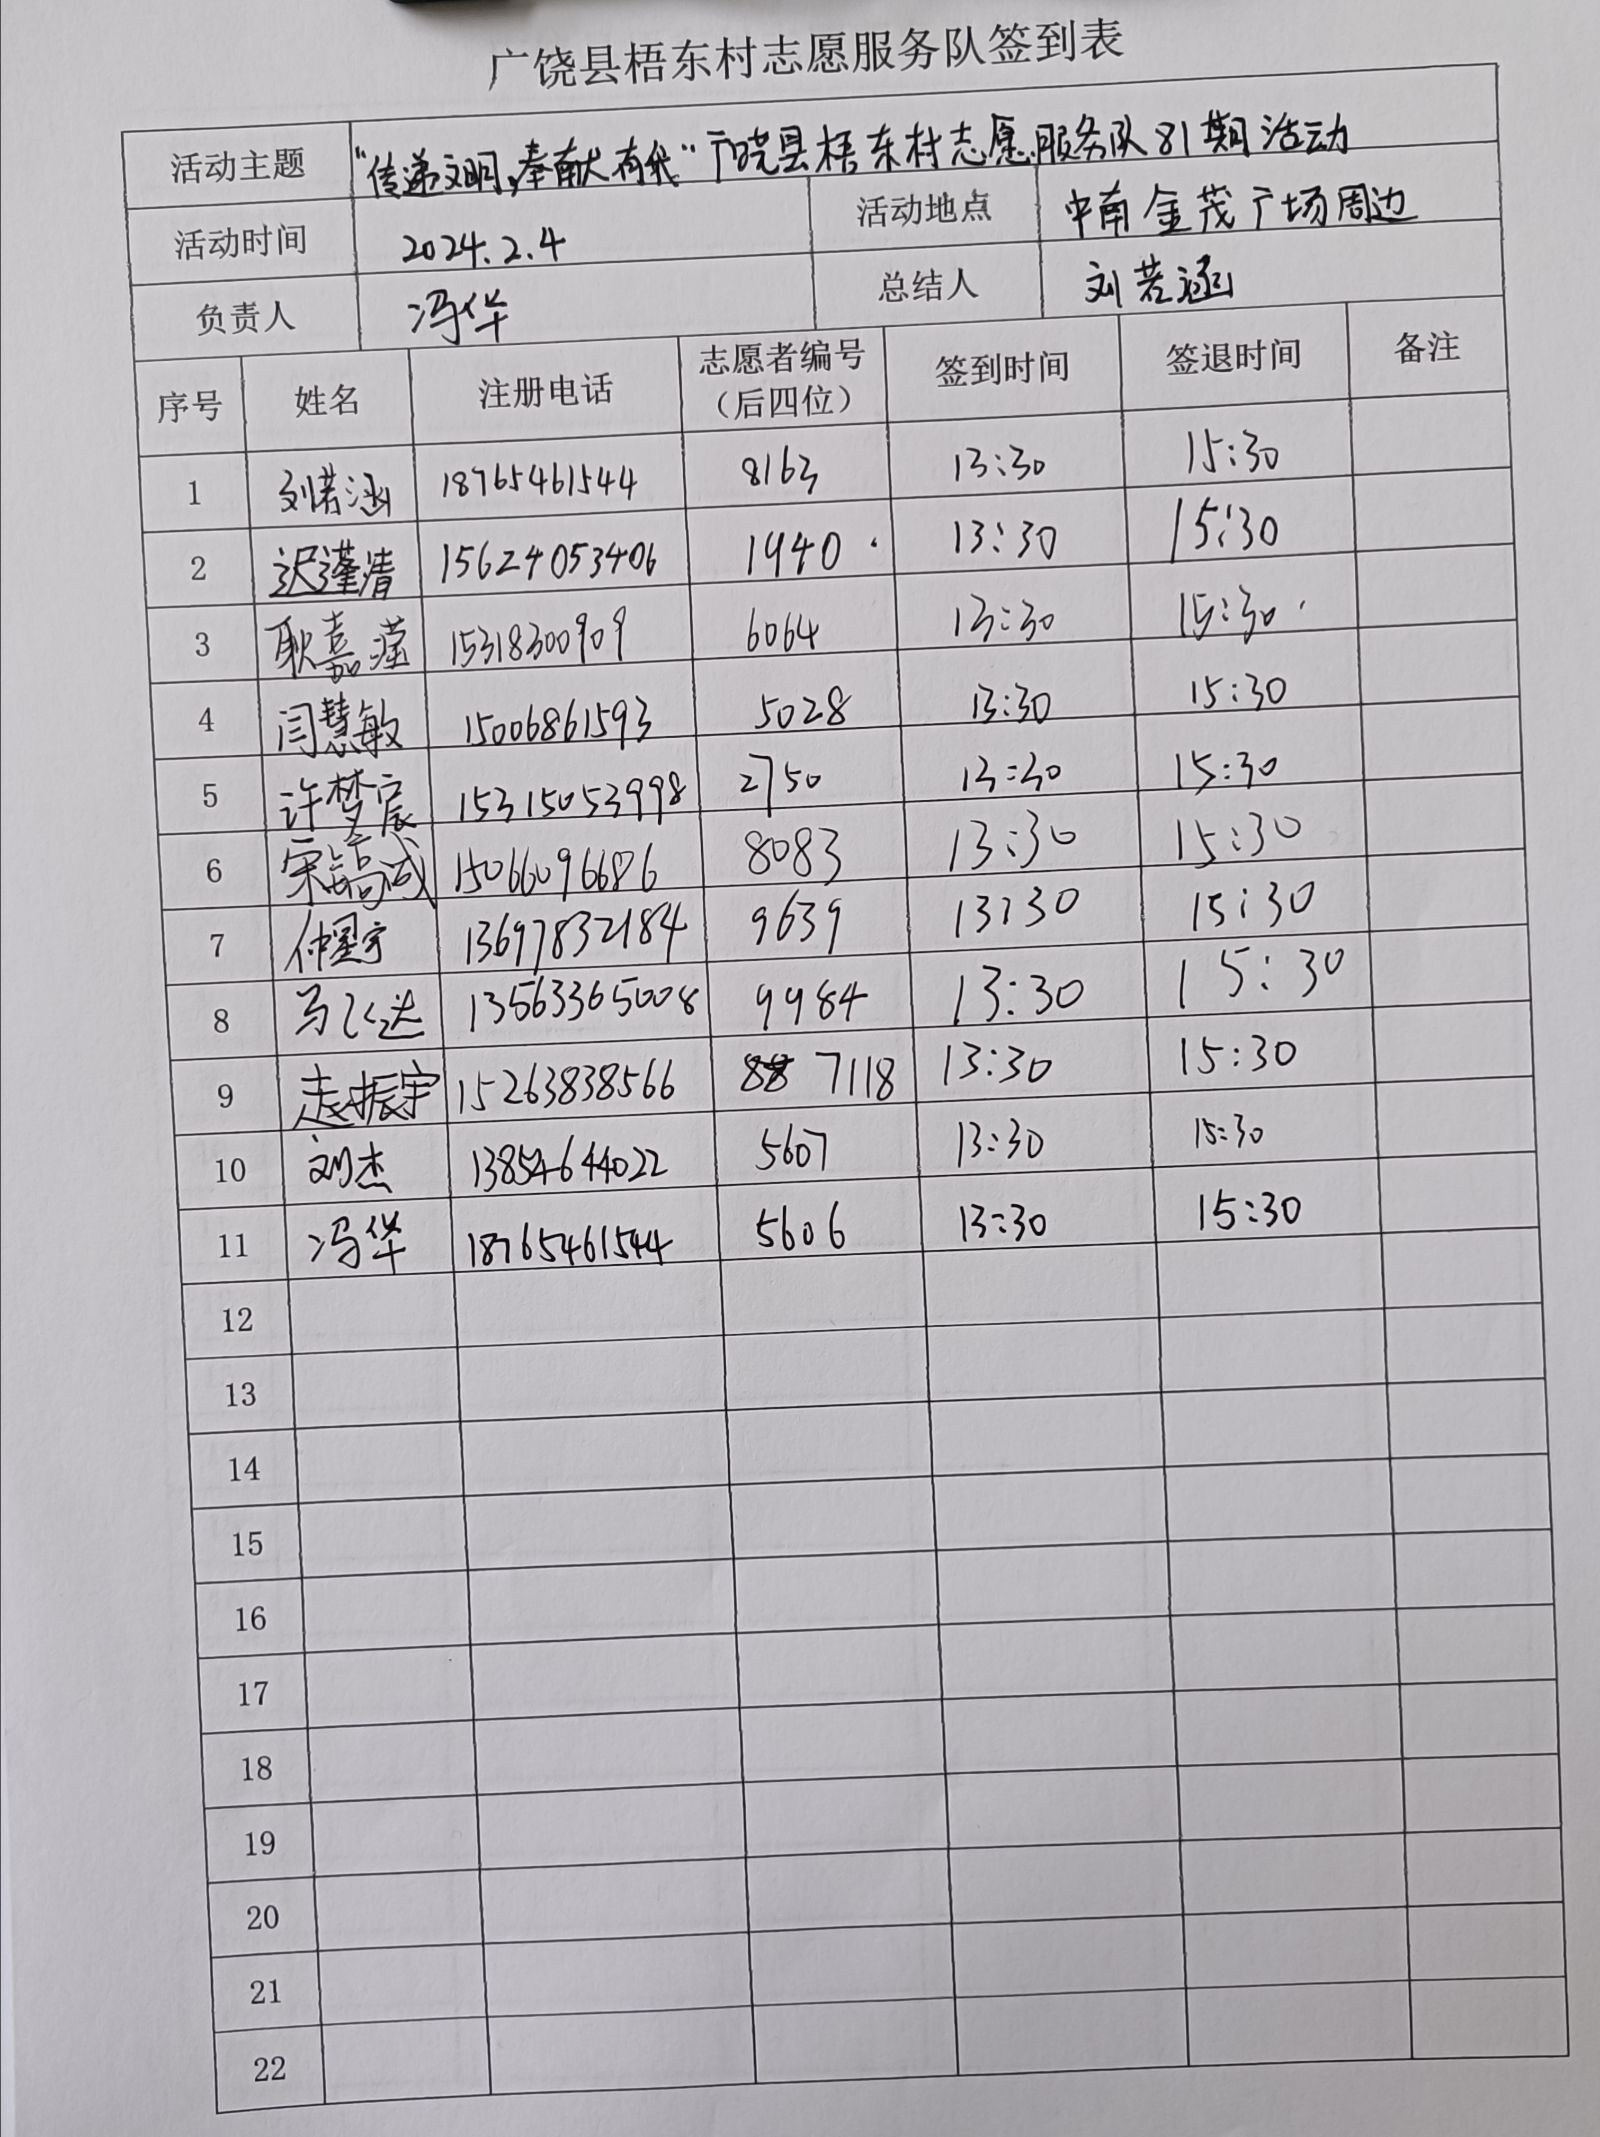 广饶县梧东村志愿服务队签到表
活动主题 "传递文明,奉献有我"广饶县梧东村志愿服务队81期活动
活动时间 2024.2.4 活动地点 中南金茂广场周边
负责人 冯华 总结人 刘若涵
序号 姓名 注册电话 志愿者编号（后四位） 签到时间 签退时间 备注
1 刘若涵 18765461544 8163 13:30 15:30
2 迟谨清 15624053406 1940 13:30 15:30
3 耿嘉滢 15318300909 6064 13:30 15:30
4 闫慧敏 15006861593 5028 13:30 15:30
5 许梦宸 15315053998 2750 13:30 15:30
6 15066096686 8083 13:30 15:30
7 仲星宇 13697832184 9639 13:30 15:30
8 马飞达 13563365008 9984 13:30 15:30
9 赵振宇 15263838566 7118 13:30 15:30
10 刘杰 13854644022 5607 13:30 15:30
11 冯华 18765461544 5606 13:30 15:30
12
13
14
15
16
17
18
19
20
21
22